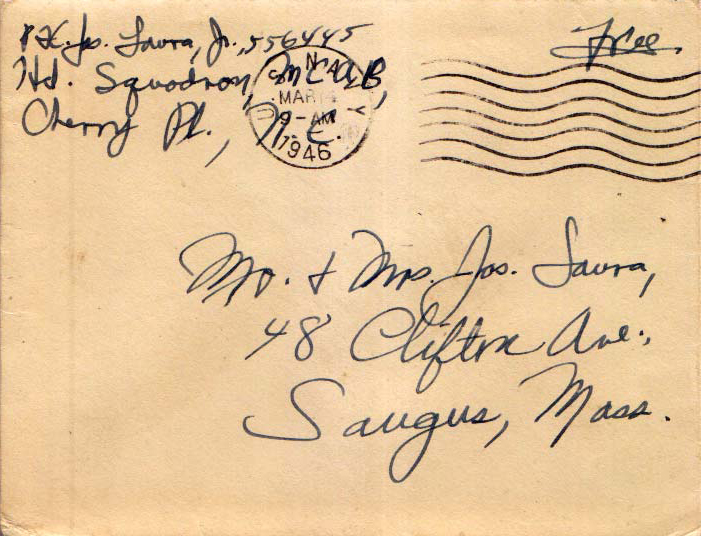 Pfc. Jos. Laura, Jr., 556445
Hd. Squadron, MCAB,
Cherry Pt., N. C.
U. S. NAVY
MAR
9-AM
1946
Free
Mr. & Mrs. Jos. Laura,
48 Clifton Ave.,
Saugus, Mass.